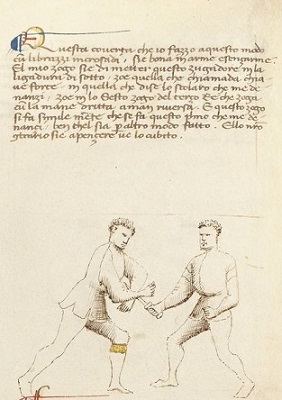 Questa coverta che io fazzo a questo modo
cum li brazzi incrosada, sie bona in arme e senz arme.
E l mio zogo sie di metter questo zugadore in la
ligadura di sotto, zoe quella che chiamada, chia
ve forte. in quella che dise lo scolaro che me de
nanzi, zoe in lo sesto zogo del terço Re che zoga
cum la mane dritta a man riversa. E questo zogo
si fa simile mente che se fa questo primo che me de
nanci, ben che l sia p altro modo fatto. E lo nro
contrario sie a penzer ve lo cubito.